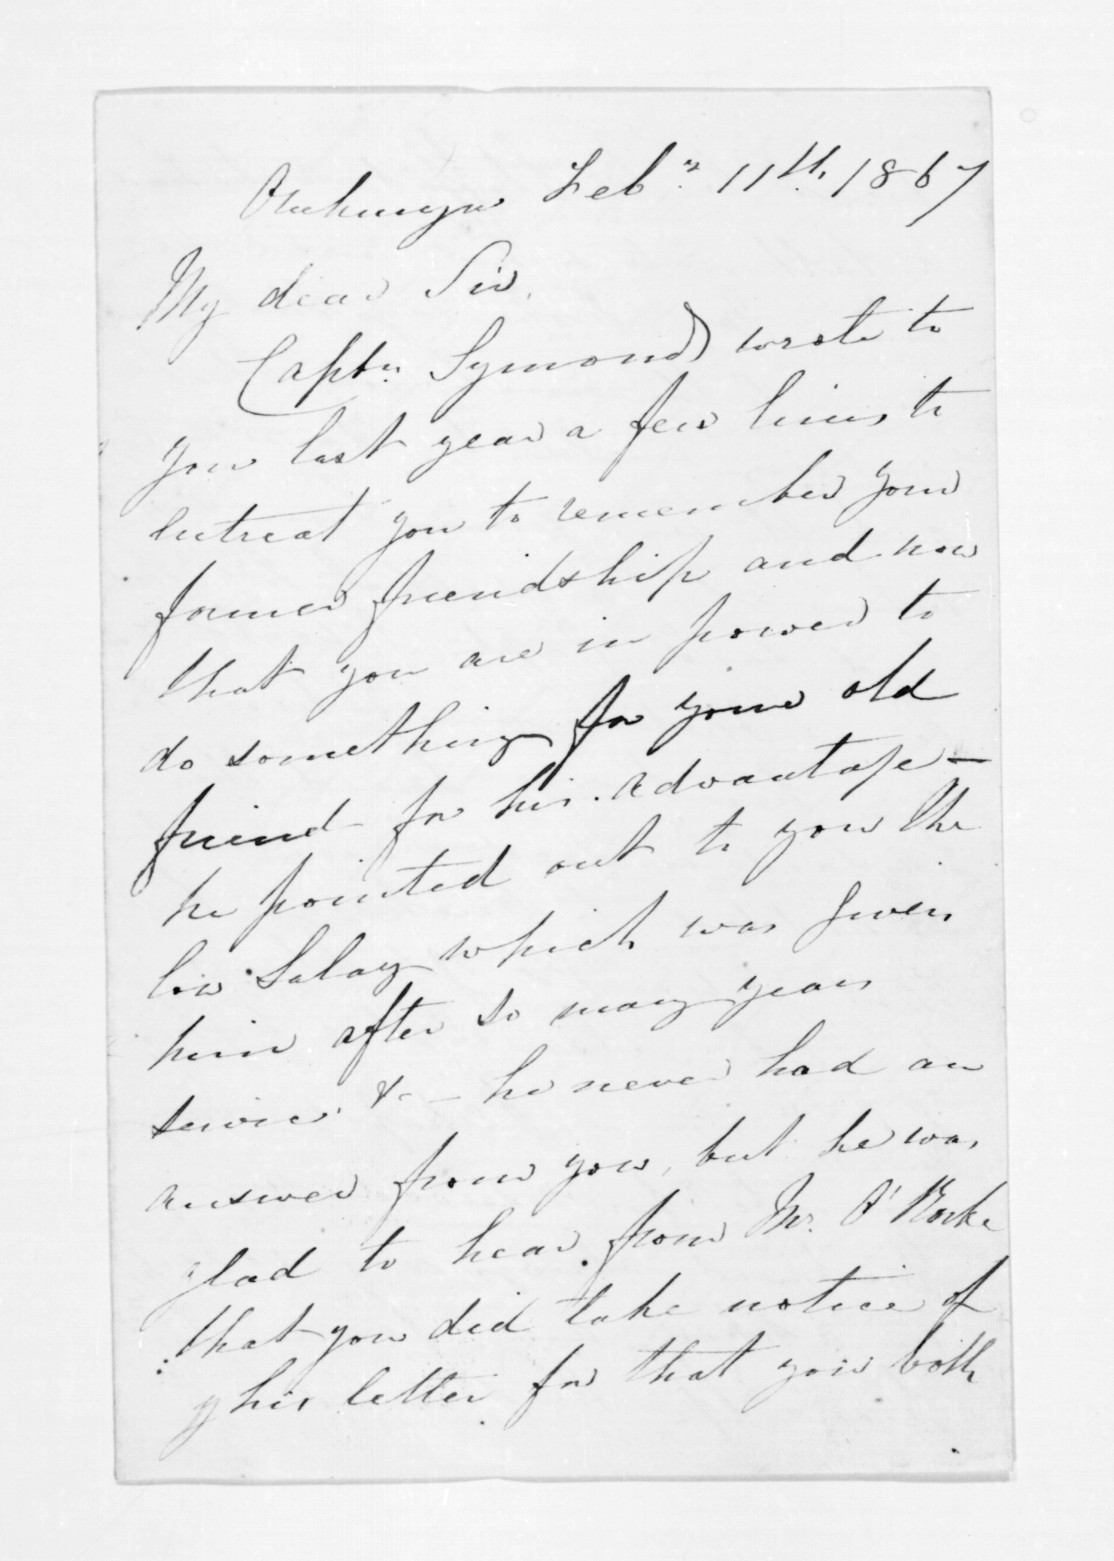 Onehunga Feby. 11th. 1867
My dear Sir,
Captn. Symonds wrote to
you last year a few lines to
entreat you to remember your
former friendship and now
that you are in power to
do something for your old
friend for his advantage —
he pointed out to you the
low Salary which was given
him after so many years
service &c — he never had an
answer from you, but he was
glad to hear from Mr. O'Rorke
that you did take notice of
his letter for that you both